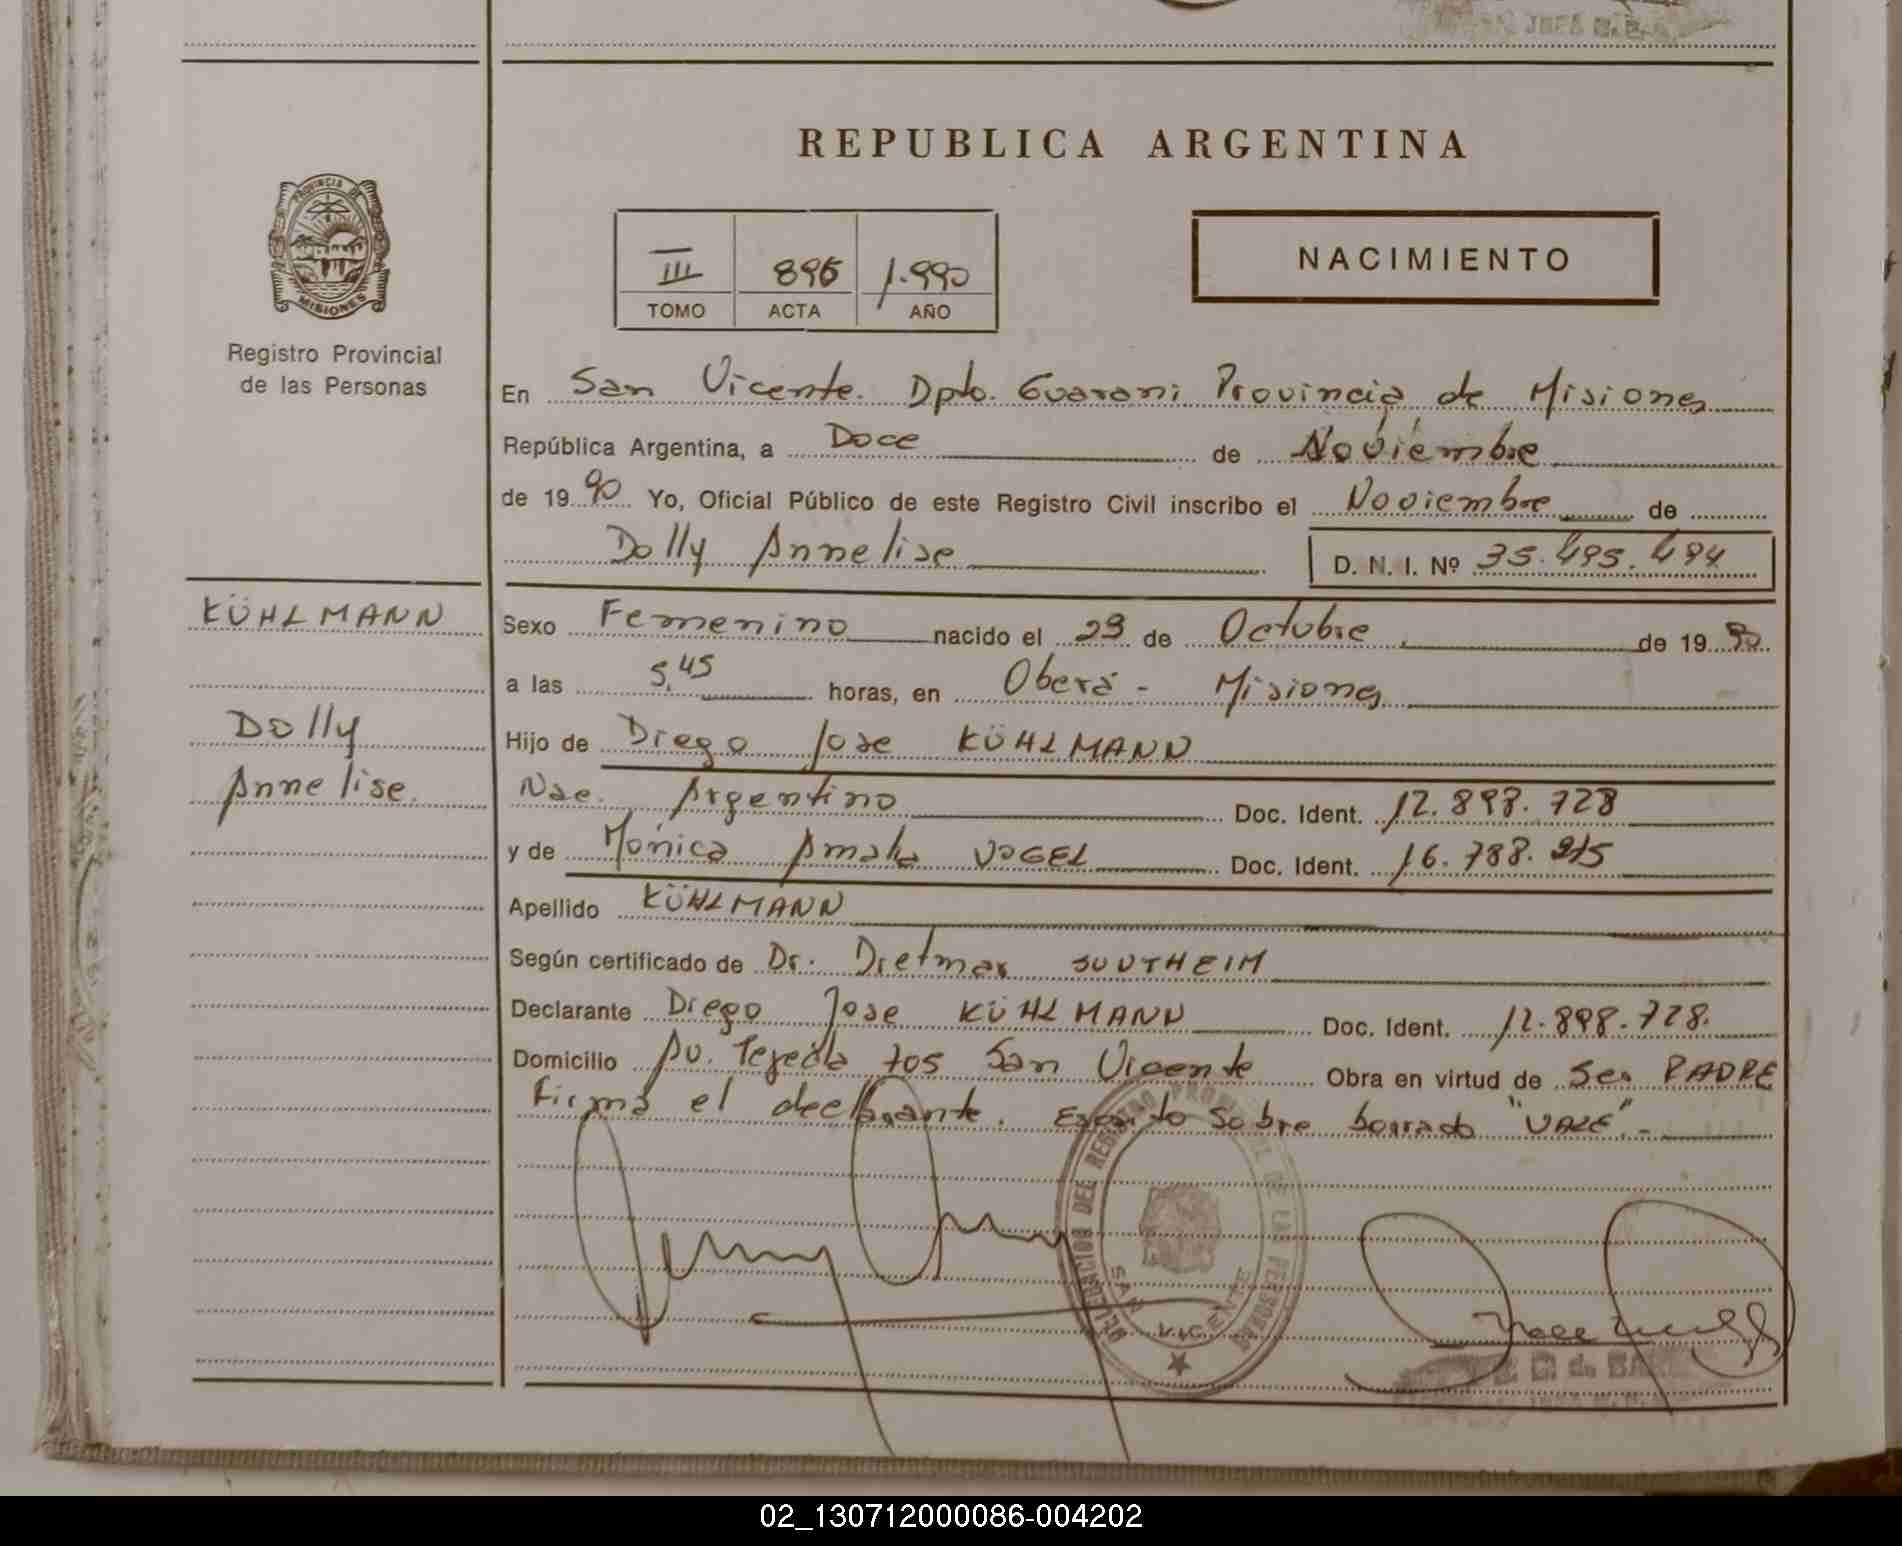 REPUBLICA ARGENTINA
PROVINCIA DE MISIONES
Registro Provincial
de las Personas
III 896 1.990
TOMO ACTA AÑO
NACIMIENTO
En San Vicente. Dpto. Guarani Provincia de Misiones
República Argentina, a Doce de Noviembre
de 1990 Yo, Oficial Público de este Registro Civil inscribo el Noviembre de
Dolly Annelise D. N. I. Nº 35.495.494
KÜHLMANN
Dolly
Annelise.
Sexo Femenino nacido el 29 de Octubre de 1990
a las 5,45 horas, en Oberá - Misiones
Hijo de Diego Jose KÜHLMANN
Nac. Argentino Doc. Ident. 12.898.728
y de Mónica Amalia VOGEL Doc. Ident. 16.788.215
Apellido KÜHLMANN
Según certificado de Dr. Dietmar
Declarante Diego Jose KÜHLMANN Doc. Ident. 12.898.728.
Domicilio Av. Tejeda 705 San Vicente Obra en virtud de Ser PADRE
Firma el declarante. Escrito sobre borrado "VALE".-
DEL REGISTRO PROVINCIAL DE LAS PERSONAS
SAN VICENTE
02_130712000086-004202